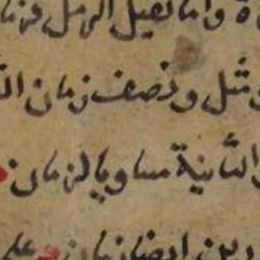 واما ثقيل الرمل فزما
مثل ونصف زمان
الثانية مساويا لزمان
ايضا زمان على